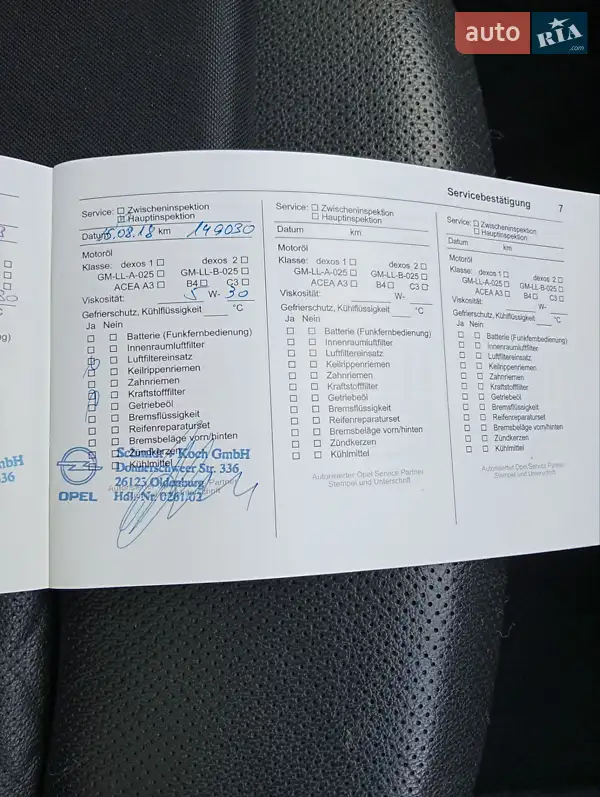 auto RIA .com
Servicebestätigung 7
Service: Zwischeninspektion
Hauptinspektion
Datum 15.08.18 km 149030
Motoröl
Klasse: dexos 1 dexos 2
GM-LL-A-025 GM-LL-B-025
ACEA A3 B4 C3
Viskosität: 5 W- 30
Gefrierschutz, Kühlflüssigkeit °C
Ja Nein
Batterie (Funkfernbedienung)
Innenraumluftfilter
Luftfiltereinsatz
Keilrippenriemen
Zahnriemen
Kraftstofffilter
Getriebeöl
Bremsflüssigkeit
Reifenreparaturset
Bremsbeläge vorn/hinten
Zündkerzen
Kühlmittel
Koch GmbH
Donnerschweer Str. 336,
26123 Oldenburg
Hdl. Nr. 0261.02
OPEL
Service: Zwischeninspektion
Hauptinspektion
Datum km
Motoröl
Klasse: dexos 1 dexos 2
GM-LL-A-025 GM-LL-B-025
ACEA A3 B4 C3
Viskosität: W-
Gefrierschutz, Kühlflüssigkeit °C
Ja Nein
Batterie (Funkfernbedienung)
Innenraumluftfilter
Luftfiltereinsatz
Keilrippenriemen
Zahnriemen
Kraftstofffilter
Getriebeöl
Bremsflüssigkeit
Reifenreparaturset
Bremsbeläge vorn/hinten
Zündkerzen
Kühlmittel
Autorisierter Opel Service Partner
Stempel und Unterschrift
Service: Zwischeninspektion
Hauptinspektion
Datum km
Motoröl
Klasse: dexos 1 dexos 2
GM-LL-A-025 GM-LL-B-025
ACEA A3 B4 C3
Viskosität: W-
Gefrierschutz, Kühlflüssigkeit °C
Ja Nein
Batterie (Funkfernbedienung)
Innenraumluftfilter
Luftfiltereinsatz
Keilrippenriemen
Zahnriemen
Kraftstofffilter
Getriebeöl
Bremsflüssigkeit
Reifenreparaturset
Bremsbeläge vorn/hinten
Zündkerzen
Kühlmittel
Autorisierter Opel Service Partner
Stempel und Unterschrift